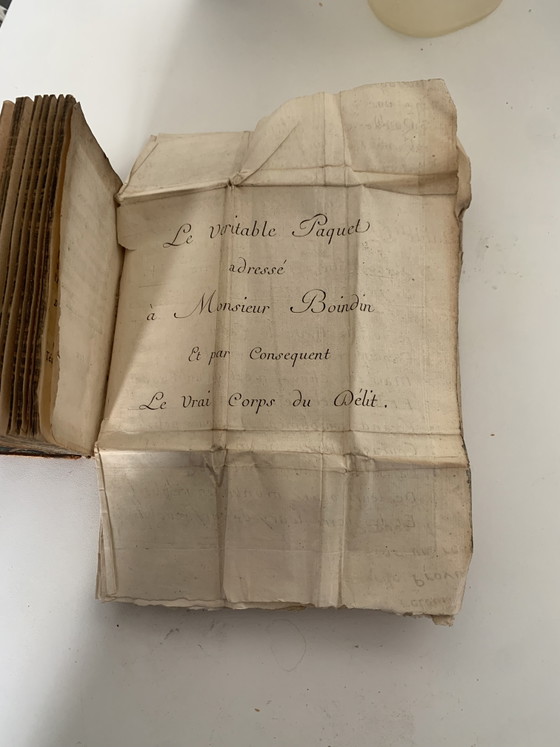 Le veritable Paquet
adressé
à Monsieur Boindin
Et par Consequent
Le vrai Corps du Délit.